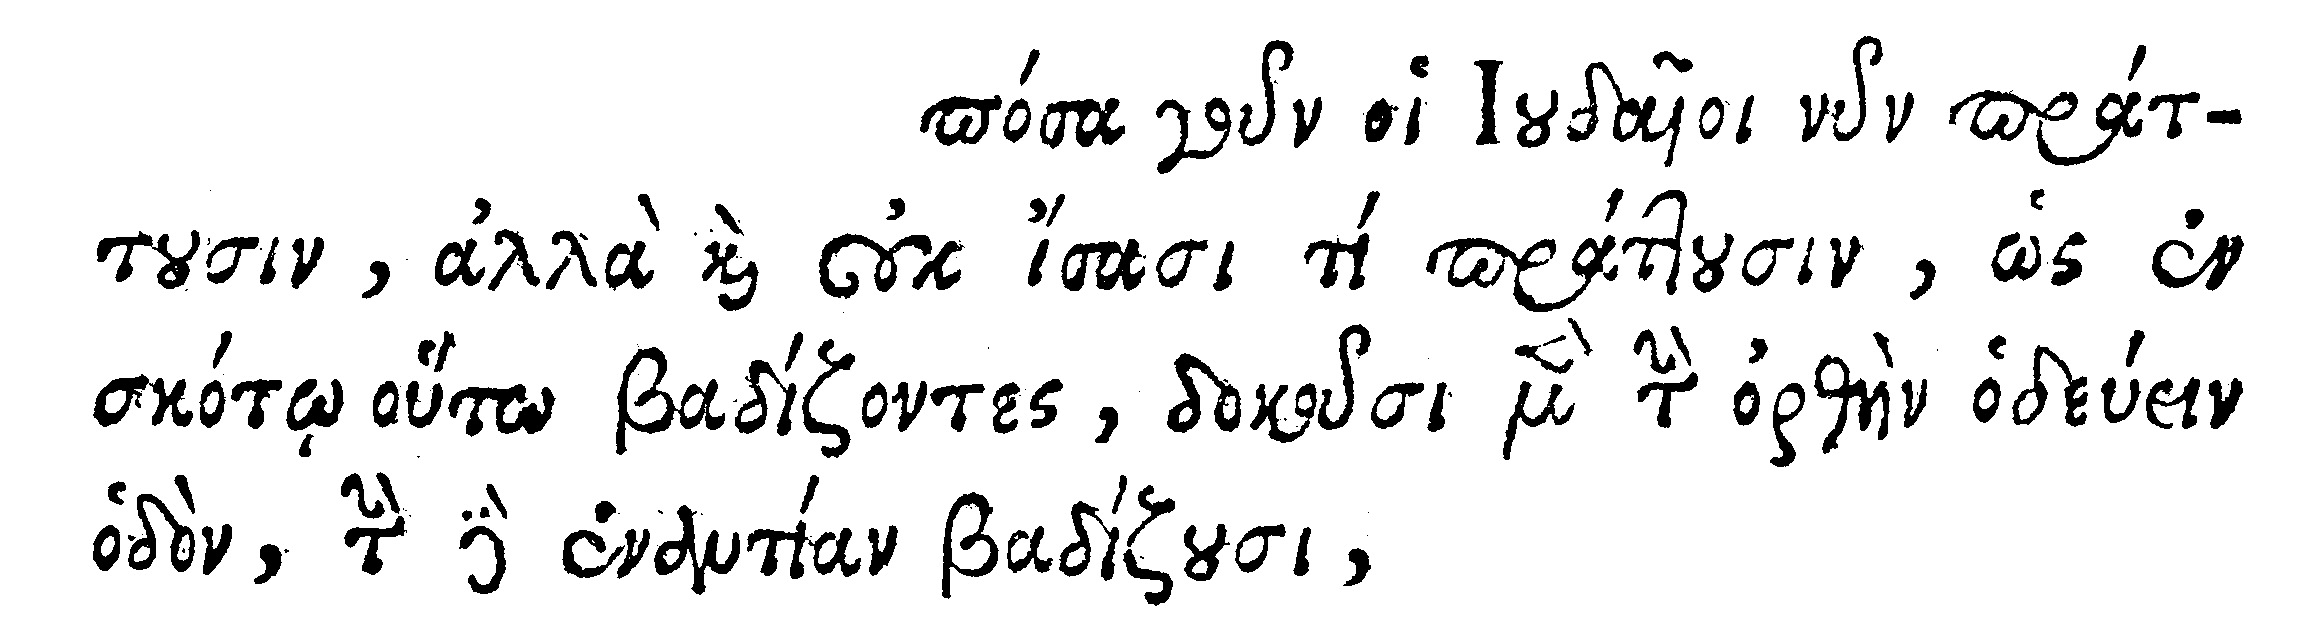 πόσα γοῦν οἱ Ἰουδαῖοι νῦν πράτ-
τουσιν, ἀλλὰ καὶ οὐκ ἴσασι τί πράττουσιν, ὡς ἐν
σκότῳ οὕτω βαδίζοντες, δοκοῦσι μὲν τὴν ὀρθὴν ὁδεύειν
ὁδὸν, τὴν δὲ ἐναντίαν βαδίζουσι,